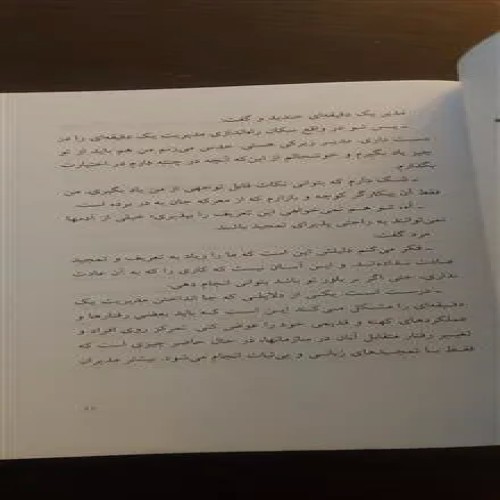 مدیر یک دقیقه‌ای خندید و گفت:
ـ پس تو در واقع سکان راه‌اندازی مدیریت یک دقیقه‌ای را در
دست داری. مدیر زیرکی هستی. حدس می‌زنم من هم باید از تو
چیز یاد بگیرم و خوشحالم از این‌که آنچه در چنته دارم در اختیارت
بگذارم.
ـ شک دارم که بتوانی نکات قابل توجهی از من یاد بگیری. من
فقط آن بیکار گر کوچه و بازارم که از معرکه جان به در برده است.
تو هم نمی‌خواهی این تعریف را بپذیری؛ خیلی از آدمها
نمی‌توانند به راحتی پذیرای تمجید باشند.
مرد گفت:
ـ فکر می‌کنم دلیلش این است که ما را زیاد به تعریف و تمجید
عادت نداده‌اند. و این آسان نیست که کاری را که به آن عادت
نداری، حتی اگر بر باور تو باشد بتوانی انجام دهی.
ـ درست است. یکی از دلایلی که جا انداختن مدیریت یک
دقیقه‌ای را مشکل می‌کند این است که باید بعضی رفتارها و
عملکردهای کهنه و قدیمی خود را عوض کنی. تمرکز روی افراد و
تغییر رفتار متقابل آنان در سازمانها، در حال حاضر چیزی است که
فقط با تمجیدهای زبانی و بی‌ثبات انجام می‌شود. بیشتر مدیران